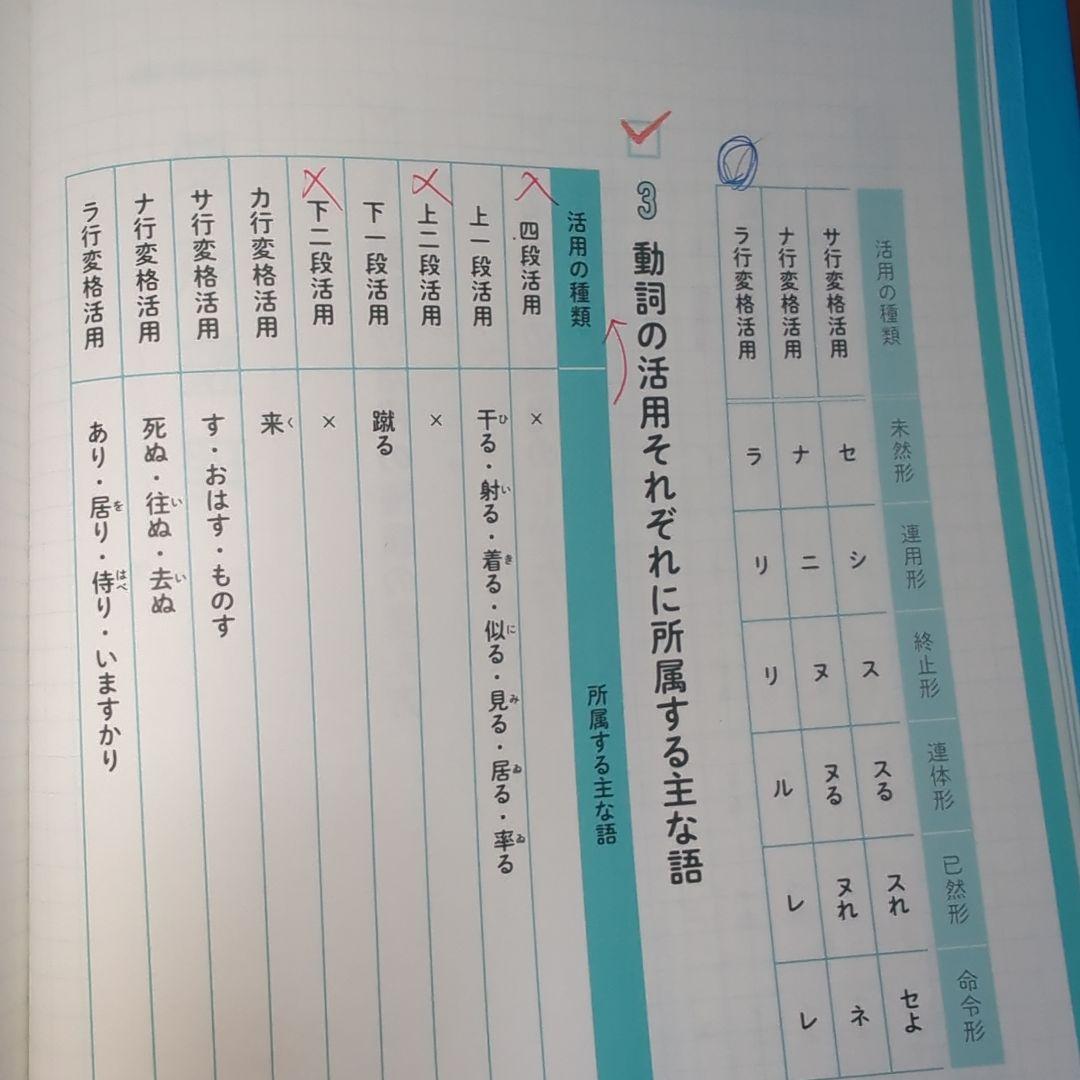 活用の種類 未然形 連用形 終止形 連体形 已然形 命令形
サ行変格活用 セ シ ス スる スれ セよ
ナ行変格活用 ナ ニ ヌ ヌる ヌれ ネ
ラ行変格活用 ラ リ リ ル レ レ
3 動詞の活用それぞれに所属する主な語
活用の種類 所属する主な語
四段活用 ×
上一段活用 干る・射る・着る・似る・見る・居る・率る
ひ い き に み ゐ ゐ
上二段活用 ×
下一段活用 蹴る
下二段活用 ×
カ行変格活用 来
く
サ行変格活用 す・おはす・ものす
ナ行変格活用 死ぬ・往ぬ・去ぬ
い い
ラ行変格活用 あり・居り・侍り・いますかり
を はべ